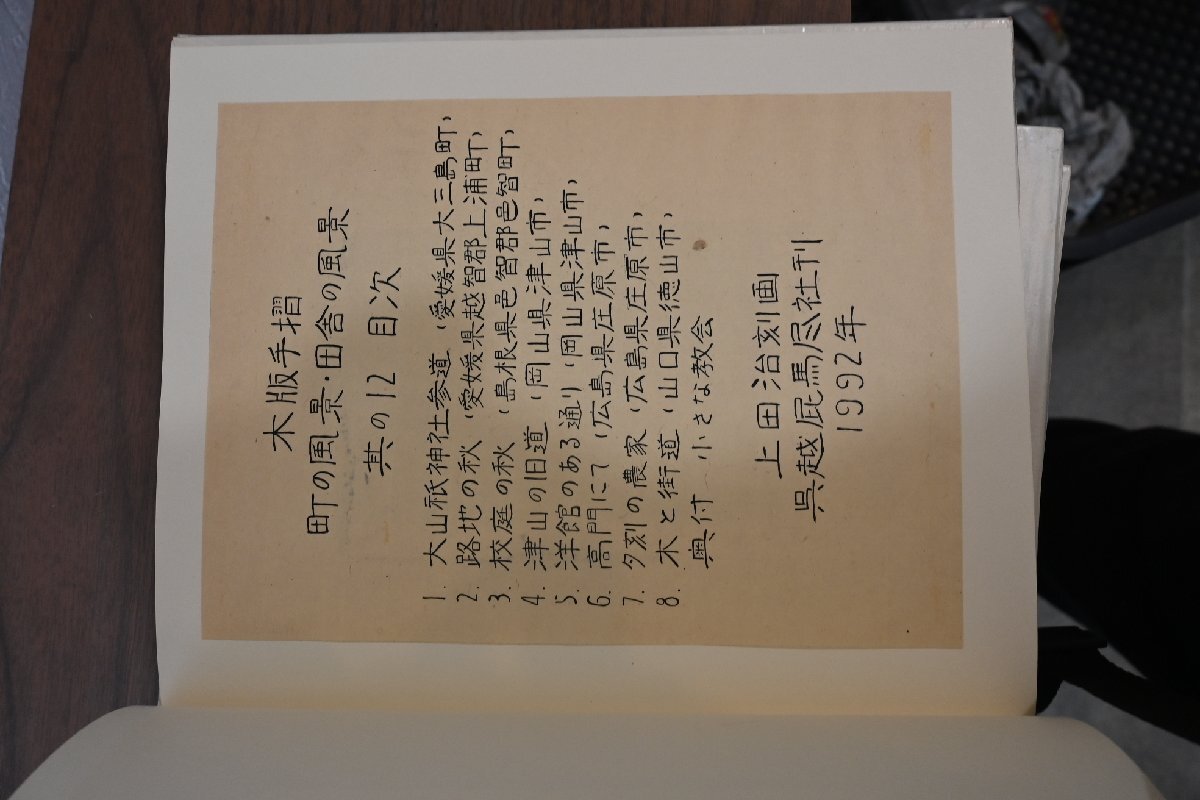 木版手摺
町の風景・田舎の風景
其の12 目次
1. 大山祇神社参道 (愛媛県大三島町)
2. 路地の秋 (愛媛県越智郡上浦町)
3. 校庭の秋 (島根県邑智郡邑智町)
4. 津山の旧道 (岡山県津山市)
5. 洋館のある通り (岡山県津山市)
6. 高門にて (広島県庄原市)
7. 夕刻の農家 (広島県庄原市)
8. 木と街道 (山口県徳山市)
奥付 小さな教会
上田治刻画
呉越屁馬尽社刊
1992年